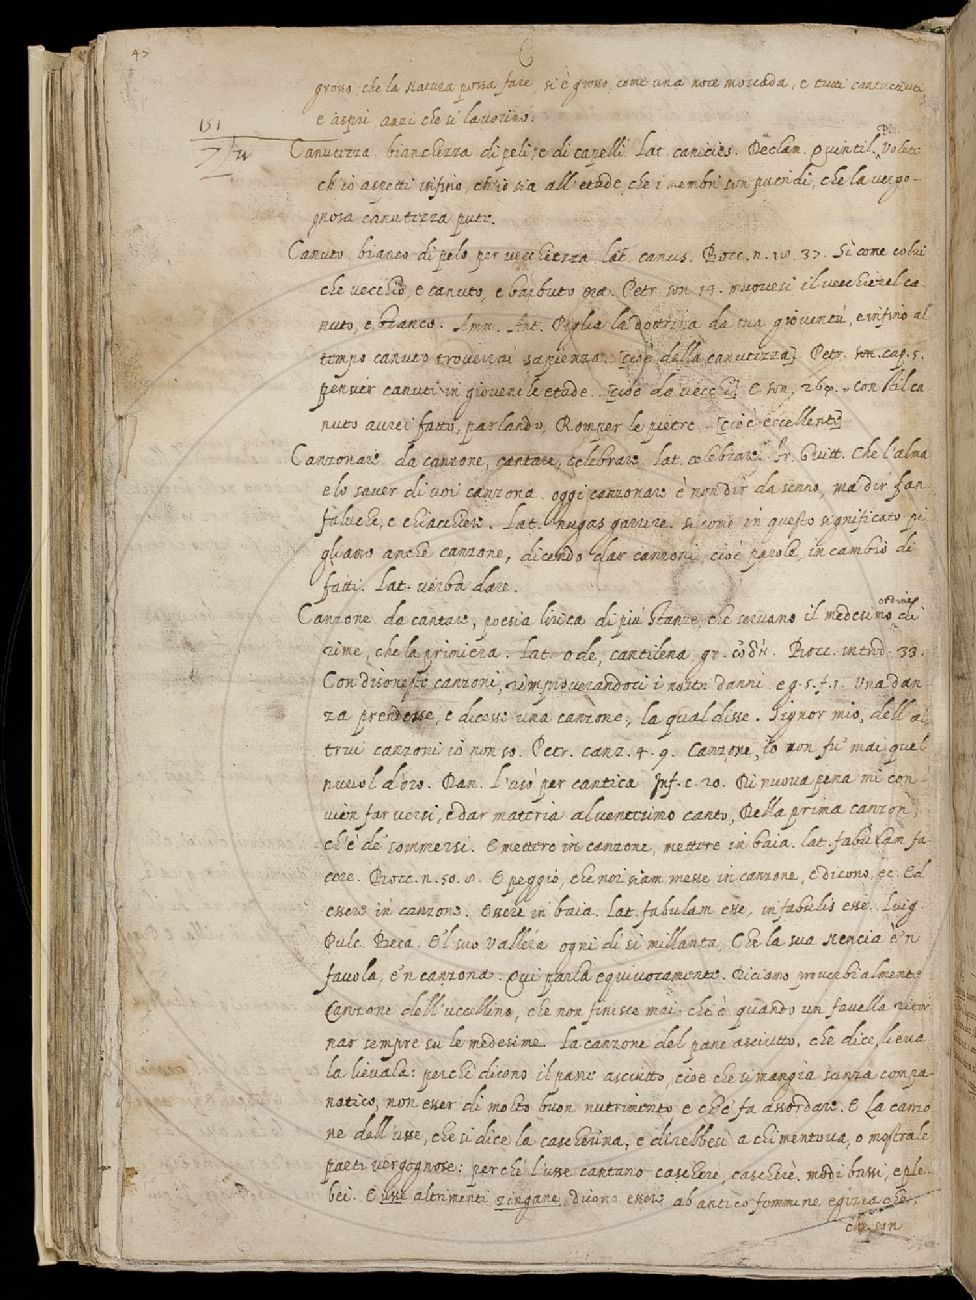 47
C
grosso, che la natura possa fare, si è grosso, come una noce moscada, e tutti cantuccuti
e aspri, anzi che si lavorino.
151
Canutezza. bianchezza di peli, e di capelli. Lat. canicies. Declam. Quintil. Volete
ch'io aspetti infino, ch'io sia all'etade, che i membri son puridi, che la vergo-
gnosa canutezza pute.
Canuto. bianco di pelo per vecchiezza. lat. canus. Bocc. n. 18. 37. Sì come colui
che vecchio, e canuto, e barbuto era. Petr. son. 14. muovesi il vecchierel ca
nuto, e bianco. Amm. Ant. Piglia la dottrina da tua gioventù, e infino al
tempo canuto troverrai sapienza. [cioè della canutezza]. Petr. son. cap. 5.
pensier canuti in giovenile etade. [cioè da vecchi] E son. 269. con stil ca
nuto avrei fatto, parlando, Romper le pietre. [cioè eccellente]
Canzonare da canzone, cantare, celebrare. lat. celebrare. Fr. Guitt. Che l'alma
e lo saver di voi canzona. oggi canzonare è non dir da senno, ma dir fan
faluche, e chiacchiere. Lat. nugas garrire. si come in questo significato pi
gliamo anche canzone, dicendo dar canzoni, cioè parole, in cambio di
fatti. lat. verba dare.
Canzone da cantare, poesia lirica di più stanze, che servano il medesimo ordine di
rime, che la primiera. Lat. ode, cantilena gr. ᾠδή. Bocc. introd. 33.
Con disoneste canzoni, rimproverandoci i nostri danni e g. 5. f. 1. Una dan
za prendesse, e dicesse una canzone, la qual disse. Signor mio, dell'al
trui canzoni io non so. Petr. canz. 4. 9. Canzone, io non fu' mai quel
nuvol d'oro. Dan. l'usò per cantica Inf. c. 20. Di nuova pena mi con-
vien far versi, e dar materia al ventesimo canto, Della prima canzon,
ch'è de' sommersi. E mettere in canzone, mettere in baia. lat. fabulam fa
cere. Bocc. n. 50. 8. E peggio, che noi siam messe in canzone, e dicono, ec. Ed
essere in canzone. Essere in baia. Lat. fabulam esse, in fabulis esse. Luig.
Pulc. Beca. E'l suo Vallera ogni dì si millanta, Che la sua Nencia è 'n
favola, e 'n canzona. Qui parla equivocamente. Diciamo proverbialmente
Canzone dell'uccellino, che non finisce mai: che è quando un favella ritor
nar sempre su le medesime. La canzone del pane asciutto, che dice, lieva
la lievala: perche dicono il pane asciutto, cioè che si mangia senza compa-
natico, non esser di molto buon nutrimento e che fa assordare. E La canzo
ne dell'usse, che si dice la cascherina, e direbbesi a chi mentova, o mostrale
parti vergognose: perche l'usse cantano cascherè, cascherè, modi bassi, e ple-
bei. E usse altrimenti zingane, dicono essere ab antico femmine egizzia che,
che son